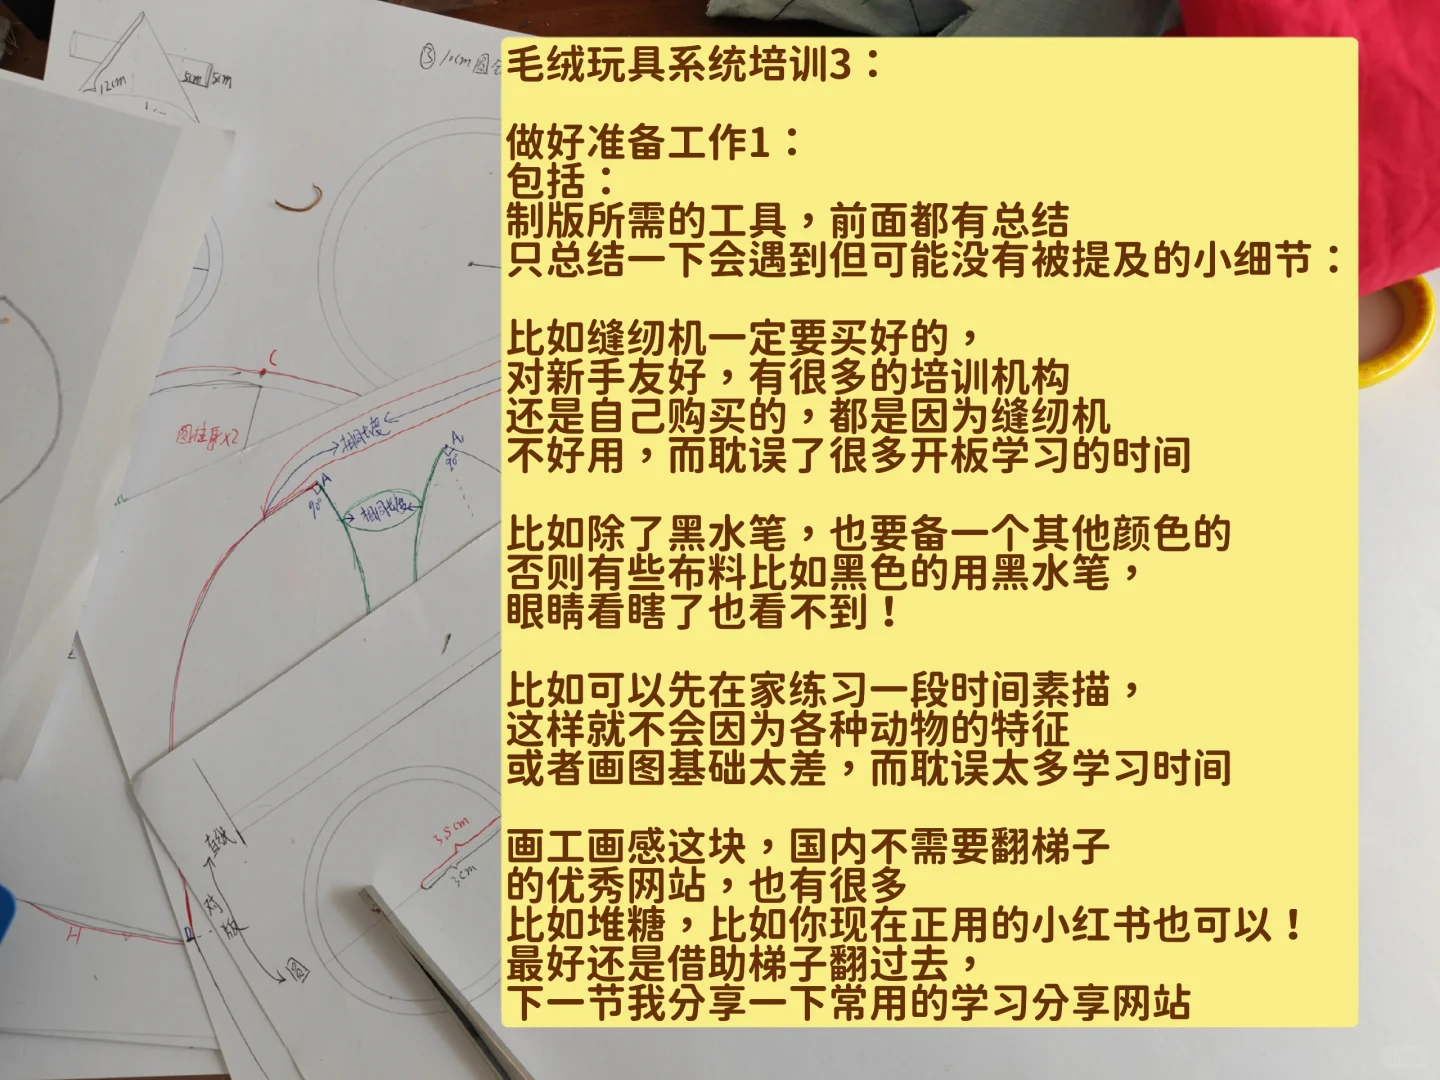 毛绒玩具系统培训3：
做好准备工作1：
包括：
制版所需的工具，前面都有总结
只总结一下会遇到但可能没有被提及的小细节：
比如缝纫机一定要买好的，
对新手友好，有很多的培训机构
还是自己购买的，都是因为缝纫机
不好用，而耽误了很多开板学习的时间
比如除了黑水笔，也要备一个其他颜色的
否则有些布料比如黑色的用黑水笔，
眼睛看瞎了也看不到！
比如可以先在家练习一段时间素描，
这样就不会因为各种动物的特征
或者画图基础太差，而耽误太多学习时间
画工画感这块，国内不需要翻梯子
的优秀网站，也有很多
比如堆糖，比如你现在正用的小红书也可以！
最好还是借助梯子翻过去，
下一节我分享一下常用的学习分享网站
12cm
5cm
5cm
③
C
圆柱身x2
相同长度
A
90°
A
90°
相同长度
3.5cm
3cm
直线
对
版
圆
H